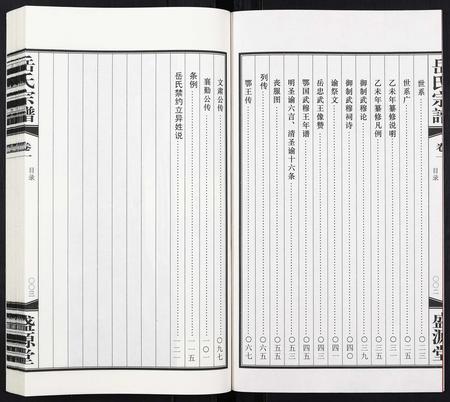 岳氏宗谱
卷一
目录
〇〇二
盛源堂
世系 〇二三
世系广 〇二五
乙未年纂修说明
乙未年纂修凡例
御制武穆论 〇三九
御制武穆祠诗 〇四〇
谕祭文 〇四一
岳忠武王像赞 〇四三
鄂国武穆王年谱 〇四五
明圣谕六言、清圣谕十六条 〇五三
丧服图 〇五五
列传 〇六五
鄂王传 〇六七
文肃公传 〇九七
襄勤公传 一〇一
条例 一一五
岳氏禁约立异姓说 一二一
岳氏宗谱
卷一
目录
〇〇三
盛源堂